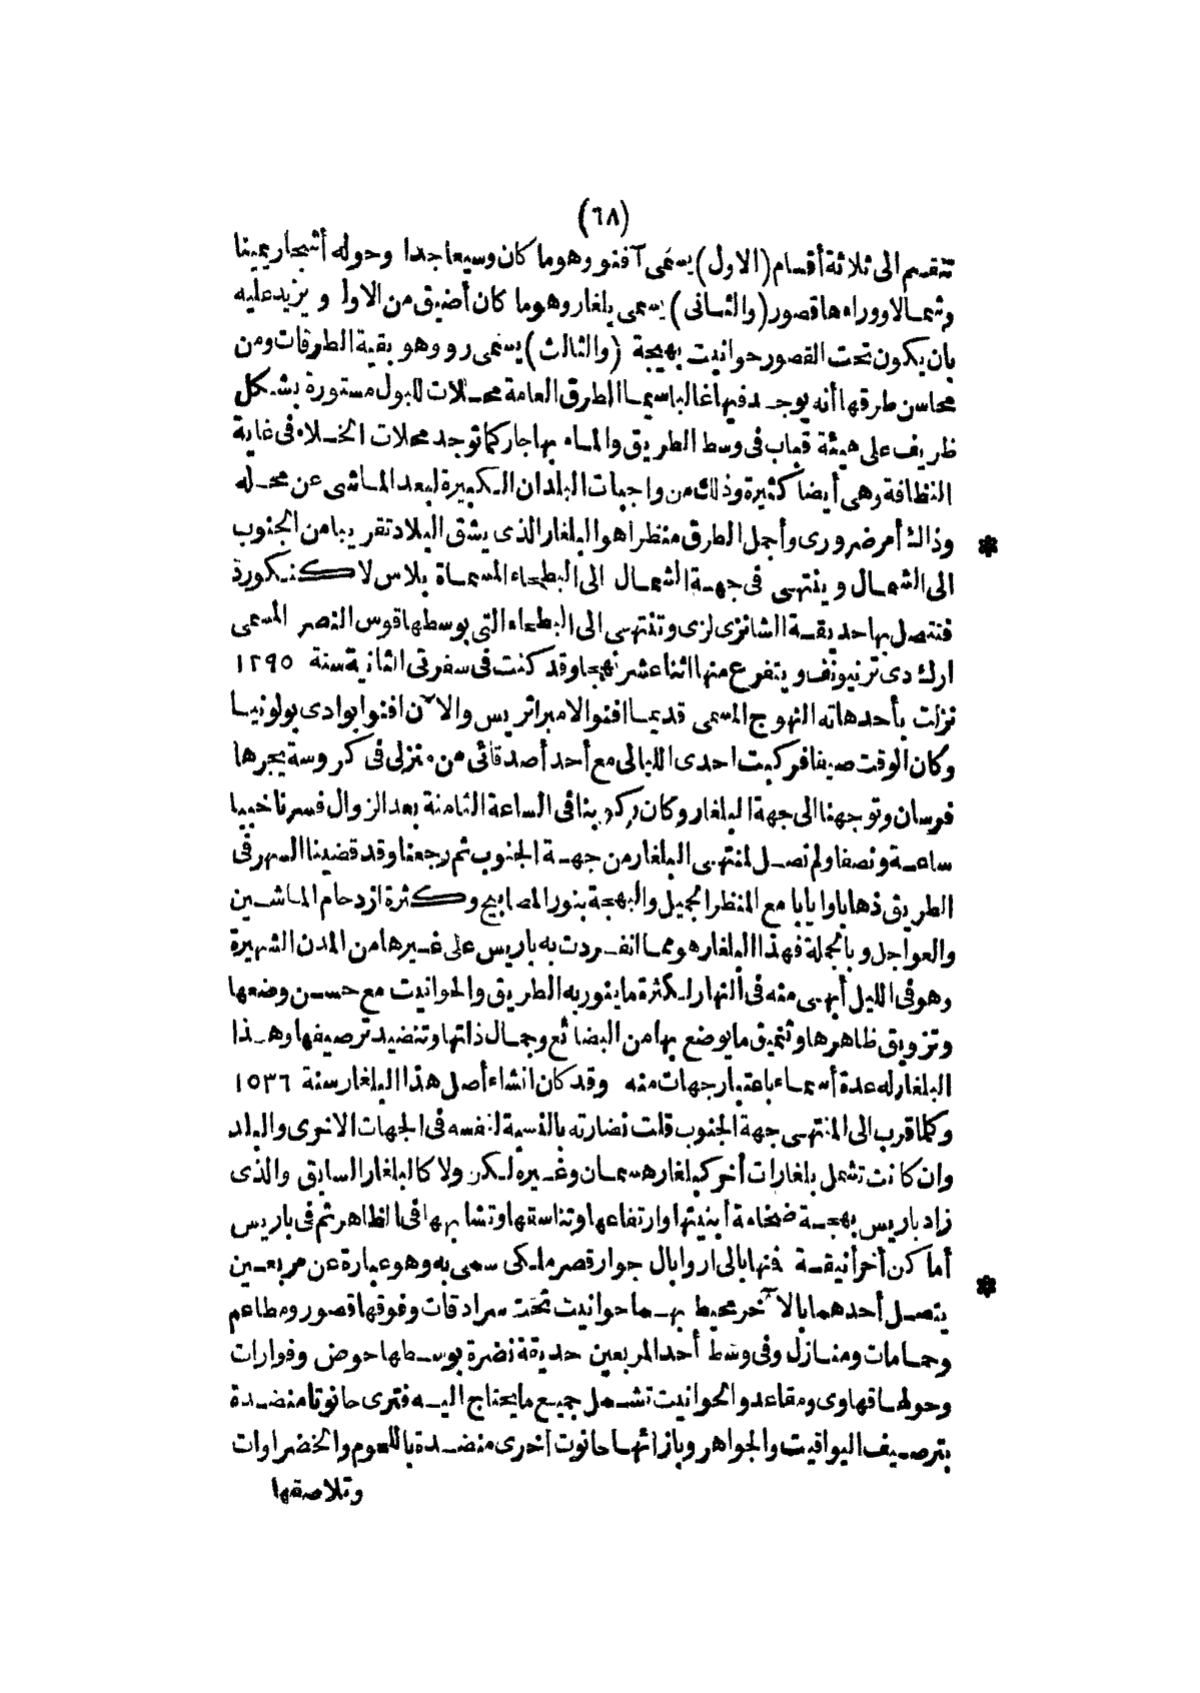 (٦٨)
تنقسم الى ثلاثة أقسام (الاول) يسمى آفنو وهو ما كان وسيعا جدا وحوله أشجار يمينا
وشمالا ووراءها قصور (والثانى) يسمى بلغار وهو ما كان أضيق من الاول ويزيد عليه
بان يكون تحت القصور حوانيت بهيجة (والثالث) يسمى رو وهو بقية الطرقات ومن
محاسن طرقها أنه يوجد فيها غالبا سيما الطرق العامة محلات للبول مستورة بشكل
ظريف على هيئة قباب فى وسط الطريق والماء بها جار كما توجد محلات الخلاء فى غاية
النظافة وهى أيضا كثيرة وذلك من واجبات البلدان الكبيرة لبعد الماشى عن محله
وذالك أمر ضرورى وأجمل الطرق منظرا هو البلغار الذى يشق البلاد تقريبا من الجنوب *
الى الشمال وينتهى فى جهة الشمال الى البطحاء المسماة بلاس لاكنكورد
فتتصل بها حديقة الشانزى لزى وتنتهى الى البطحاء التى بوسطها قوس النصر المسمى
ارك دى ترنيونف ويتفرع منها اثنا عشر نهجا وقد كنت فى سفرتى الثانية سنة ١٢٩٥
نزلت بأحد هاته النهوج المسمى قديما افنو الامبراتريس والآن افنوا بوادى بولونيا
وكان الوقت صيفا فركبت احدى الليالى مع أحد أصدقائى من منزلى فى كروسة يجرها
فرسان وتوجهنا الى جهة البلغار وكان ركوبنا فى الساعة الثامنة بعد الزوال فسرنا خببا
ساعة ونصفا ولم نصل لمنتهى البلغار من جهة الجنوب ثم رجعنا وقد قضينا السهر فى
الطريق ذهابا وايابا مع المنظر الجميل والبهجة بنور المصابيح وكثرة ازدحام الماشين
والعواجل وبالجملة فهذا البلغار هو مما انفردت به باريس على غيرها من المدن الشهيرة
وهو فى الليل أبهى منه فى النهار لكثرة ما ينور به الطريق والحوانيت مع حسن وضعها
وتزويق ظاهرها وتنميق ما يوضع بها من البضائع وجمال ذاتها وتنضيد ترصيفها وهذا
البلغار له عدة أسماء باعتبار جهات منه وقد كان انشاء أصل هذا البلغار سنة ١٥٣٦
وكلما قرب الى المنتهى جهة الجنوب قلت نضارته بالنسبة لنفسه فى الجهات الاخرى والبلد
وان كانت تشمل بلغارات أخر كبلغار هسمان وغيره لكن ولا كالبلغار السابق والذى
زاد باريس بهجة ضخامة أبنيتها وارتفاعها وتناسقها وتشابهها فى الظاهر ثم فى باريس
أماكن أخر أنيقة فمنها بالى اروايال جوار قصر ملكى سمى به وهو عبارة عن مربعين *
يتصل أحدهما بالآخر محيط بهما حوانيت تحت سرادقات وفوقها قصور ومطاعم
وحمامات ومنازل وفى وسط أحد المربعين حديقة نضرة بوسطها حوض وفوارات
وحولها قهاوى ومقاعد والحوانيت تشمل جميع ما يحتاج اليه فترى حانوتا منضدة
بترصيف اليواقيت والجواهر وبازائها حانوت أخرى منضدة باللحوم والخضراوات
وتلاصقها